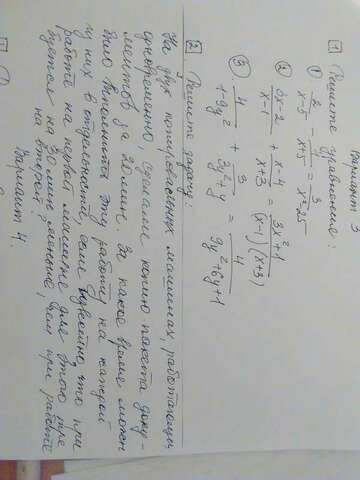 Вариант 3
1 Решите уравнение:
① 2/(x-5) - x/(x+5) = 3/(x²-25)
② (6x-2)/(x-1) + (x-4)/(x+3) = (3x²+1)/((x-1)(x+3))
③ 4/(1+9y²) + 3/(3y²+y) = 4/(9y²+6y+1)
2 Решите задачу:
На двух копировальных машинах, работающих
одновременно, сделали копию пакета доку-
ментов за 20мин. За какое время можн
было выполнить эту работу на каждой
из них в отдельности, если известно, что при
работе на первой машине для этого тре
буется на 30 мин меньше, чем при работе
на второй?
Вариант 4.